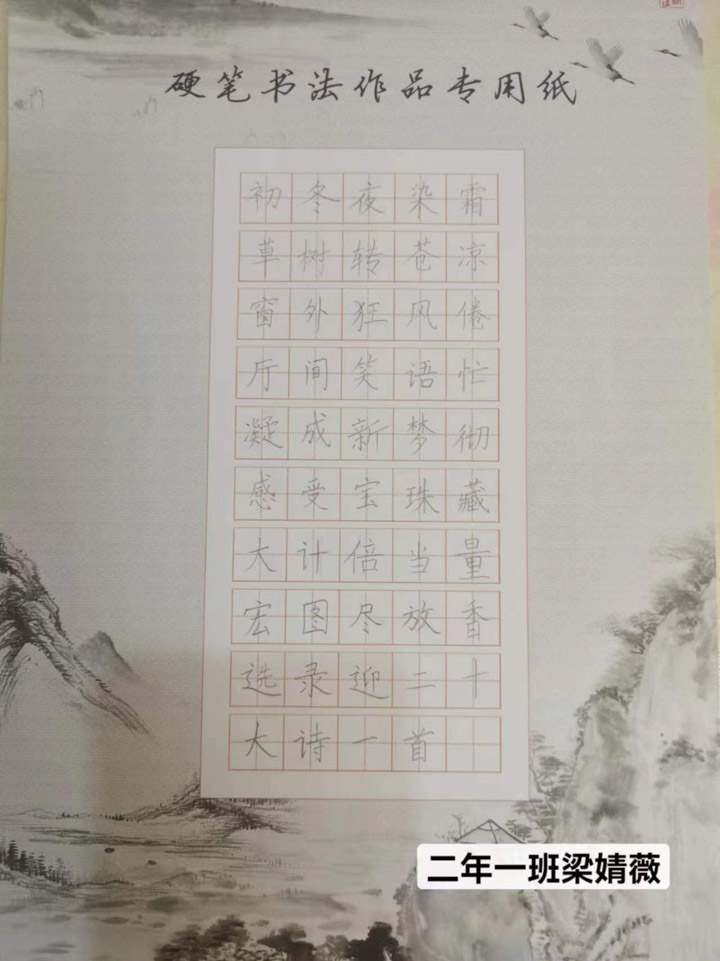 硬笔书法作品专用纸
初冬夜染霜
草树转苍凉
窗外狂风倦
厅间笑语忙
凝成新梦彻
感受宝珠藏
大计倍当量
宏图尽放香
选录迎二十
大诗一首
二年一班梁婧薇